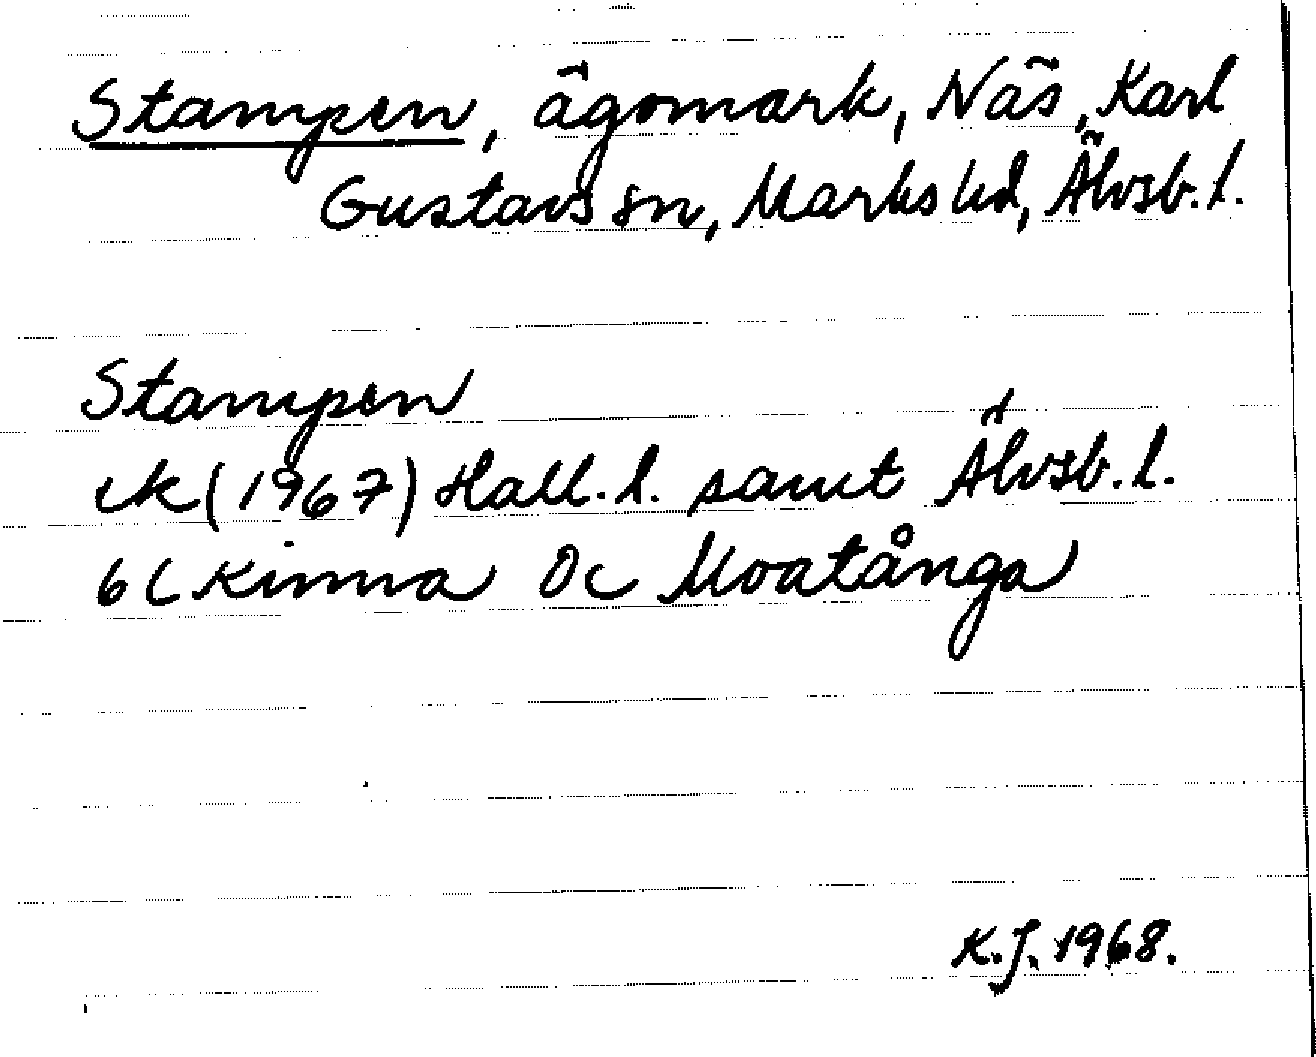 Stampen, ägomark, Näs, Karl
Gustavs sn, Marks hd, Älvsb. l.
Stampen
ek (1967) Hall. l. samt Älvsb. l.
6 C Kinna 0 c Moatånga
K.J. 1968.